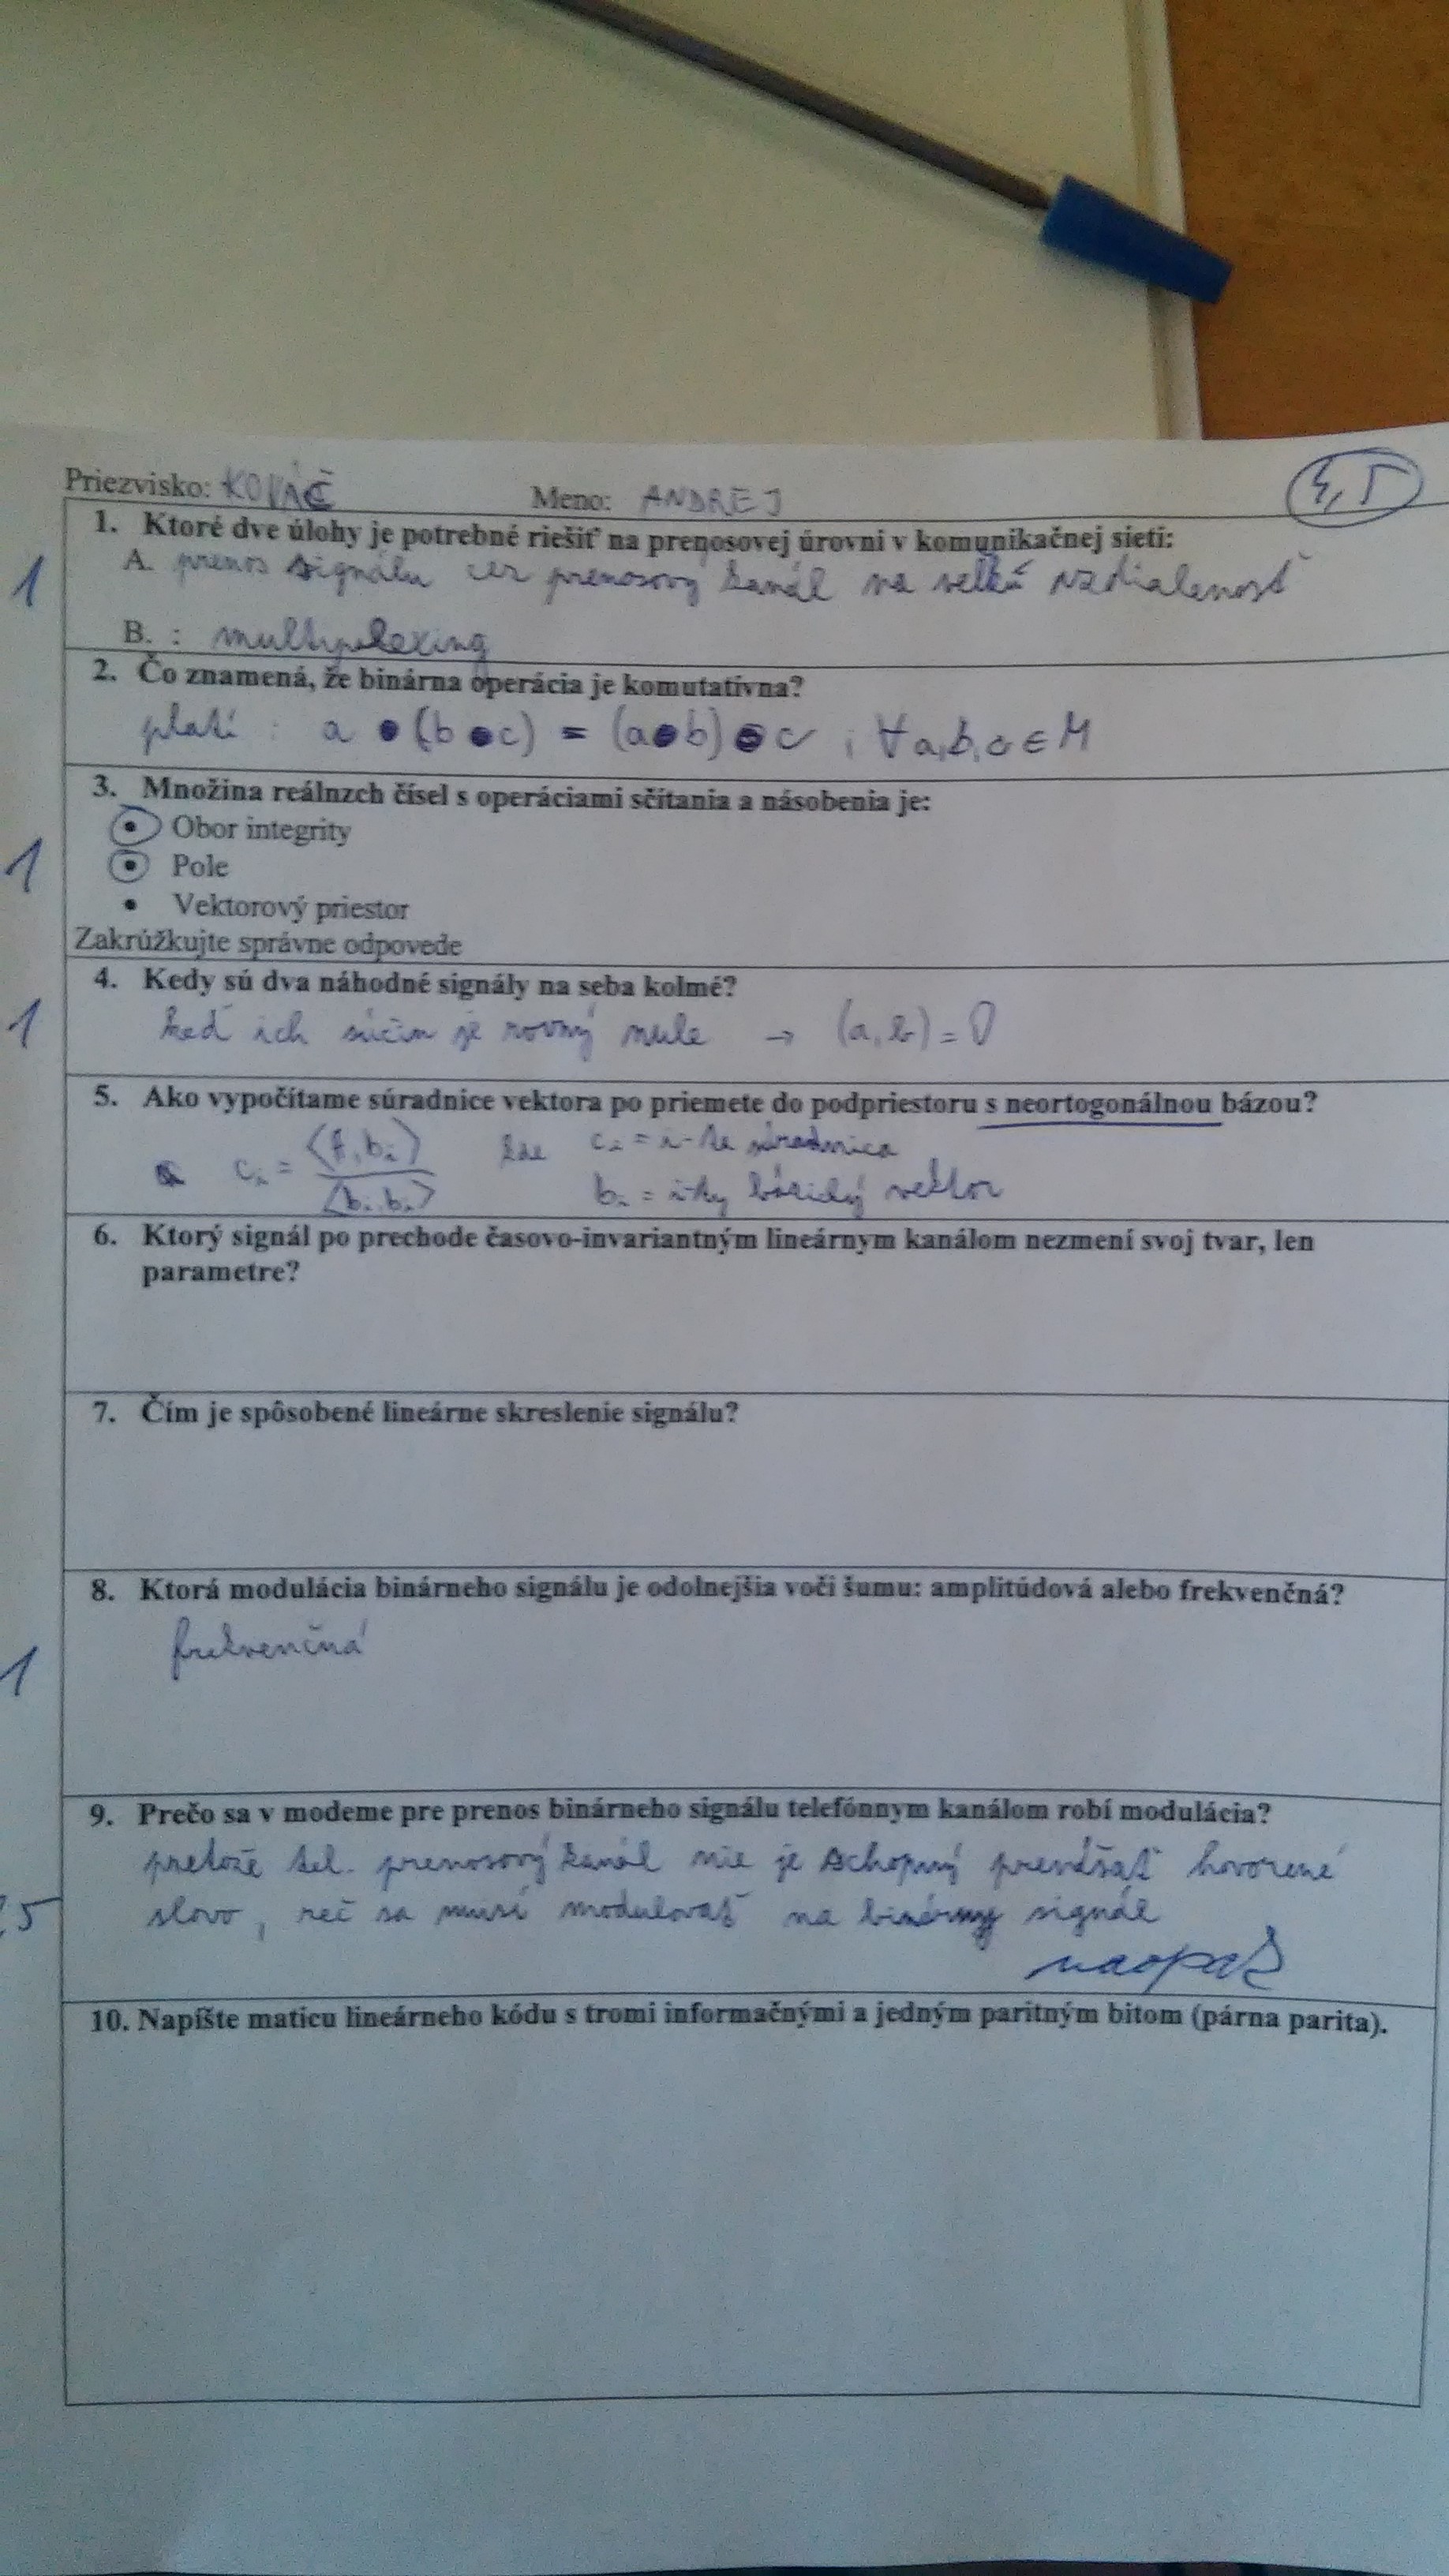 Priezvisko: KOVÁČ Meno: ANDREJ 4,5
1. Ktoré dve úlohy je potrebné riešiť na prenosovej úrovni v komunikačnej sieti:
1 A. prenos signálu cez prenosový kanál na veľkú vzdialenosť
B. : multyplexing
2. Čo znamená, že binárna operácia je komutatívna?
platí : a • (b • c) = (a • b) • c ; ∀ a,b,c ∈ M
3. Množina reálnzch čísel s operáciami sčítania a násobenia je:
• Obor integrity
1 • Pole
• Vektorový priestor
Zakrúžkujte správne odpovede
4. Kedy sú dva náhodné signály na seba kolmé?
1 keď ich súčin je rovný nule → (a, b) = 0
5. Ako vypočítame súradnice vektora po priemete do podpriestoru s neortogonálnou bázou?
c_i = <f, b_i> / <b_i, b_i> kde c_i = i-ta súradnica
b_i = i-ty bázický vektor
6. Ktorý signál po prechode časovo-invariantným lineárnym kanálom nezmení svoj tvar, len
parametre?
7. Čím je spôsobené lineárne skreslenie signálu?
8. Ktorá modulácia binárneho signálu je odolnejšia voči šumu: amplitúdová alebo frekvenčná?
frekvenčná
1
9. Prečo sa v modeme pre prenos binárneho signálu telefónnym kanálom robí modulácia?
pretože tel. prenosový kanál nie je schopný prenášať hovorené
,5 slovo, reč sa musí modulovať na binárny signál
naopak
10. Napíšte maticu lineárneho kódu s tromi informačnými a jedným paritným bitom (párna parita).